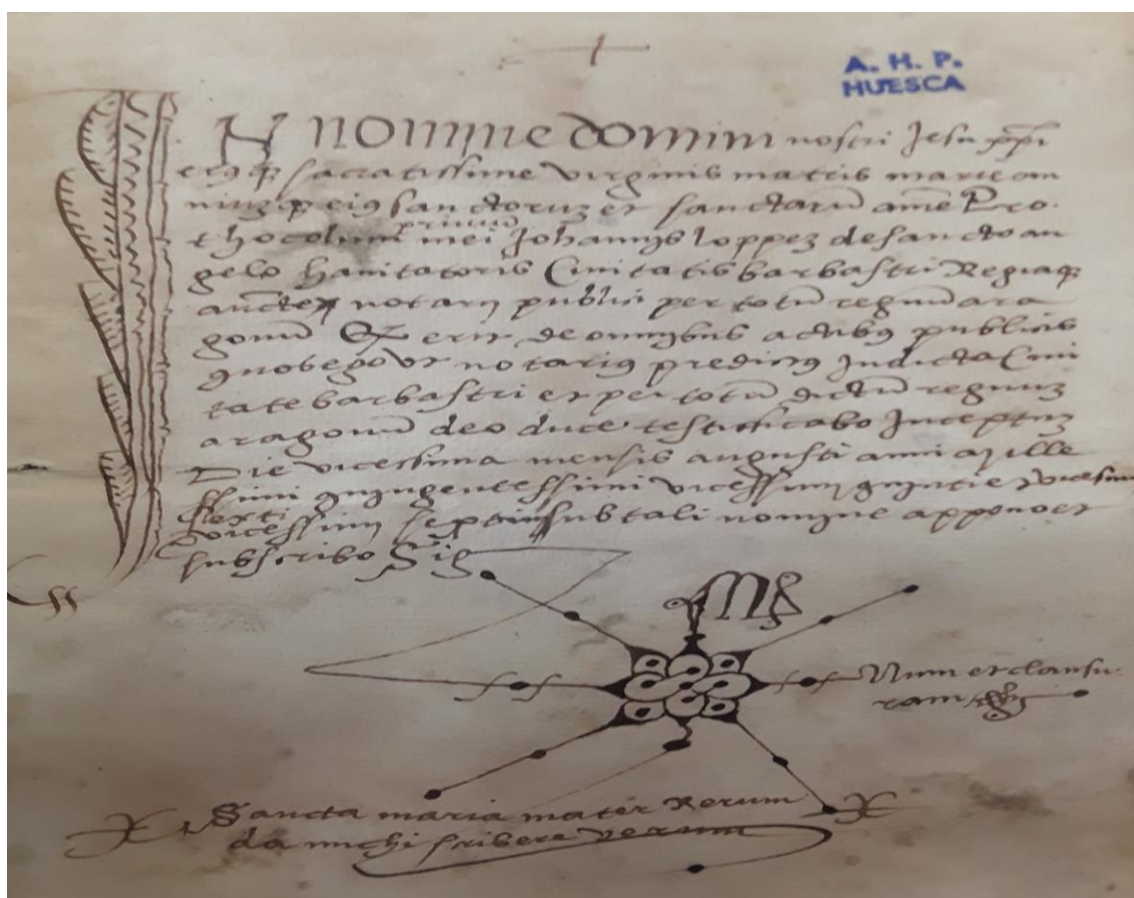 A. H. P.
HUESCA
IN nomine domini nostri Jesu xpi
eiusq sacratissime virginis matris marie om
niuzq eius sanctoruz et sanctarū amē Pro
primū
thocolum mei Johannis loppez de sancto an
gelo hauitatoris Ciuitatis barbastri Regiaq
aucte notarii publici per totū regnū ara
gonū Et erit de omnibus actibus publicis
quos ego vt notarius predictus Indicta Ciui
tate barbastri et per totū dictū regnuz
aragonū deo duce testificabo Inceptuz
Die vicessima mensis augusti anni mille
ssimi quingentessimi vicessimi
sexti
vicessimi septimi sub tali nomine appono et
subscribo Sig
Num et clausu
ram
Sancta maria mater Rerum
da michi scribere verum